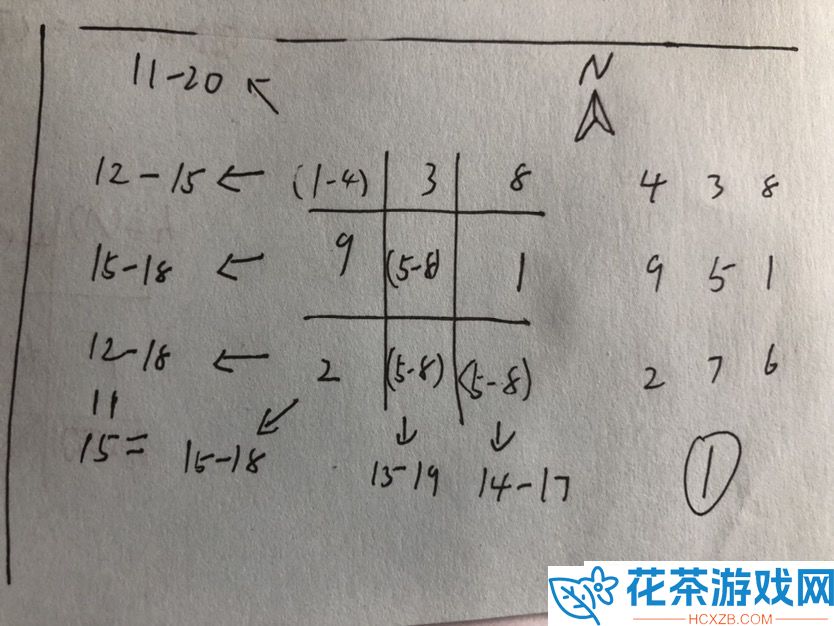 11-20 ↖
N
12-15 ← (1-4) 3 8 4 3 8
15-18 ← 9 (5-8) 1 9 5 1
12-18 ← 2 (5-8) (5-8) 2 7 6
11
15= 15-18 13-19 14-17 ①
花茶游戏网
HCXZB.COM